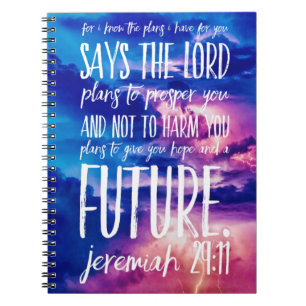 for i know the plans i have for you
SAYS THE LORD
plans to prosper you
AND NOT TO HARM YOU
plans to give you hope and a
FUTURE.
jeremiah 29:11